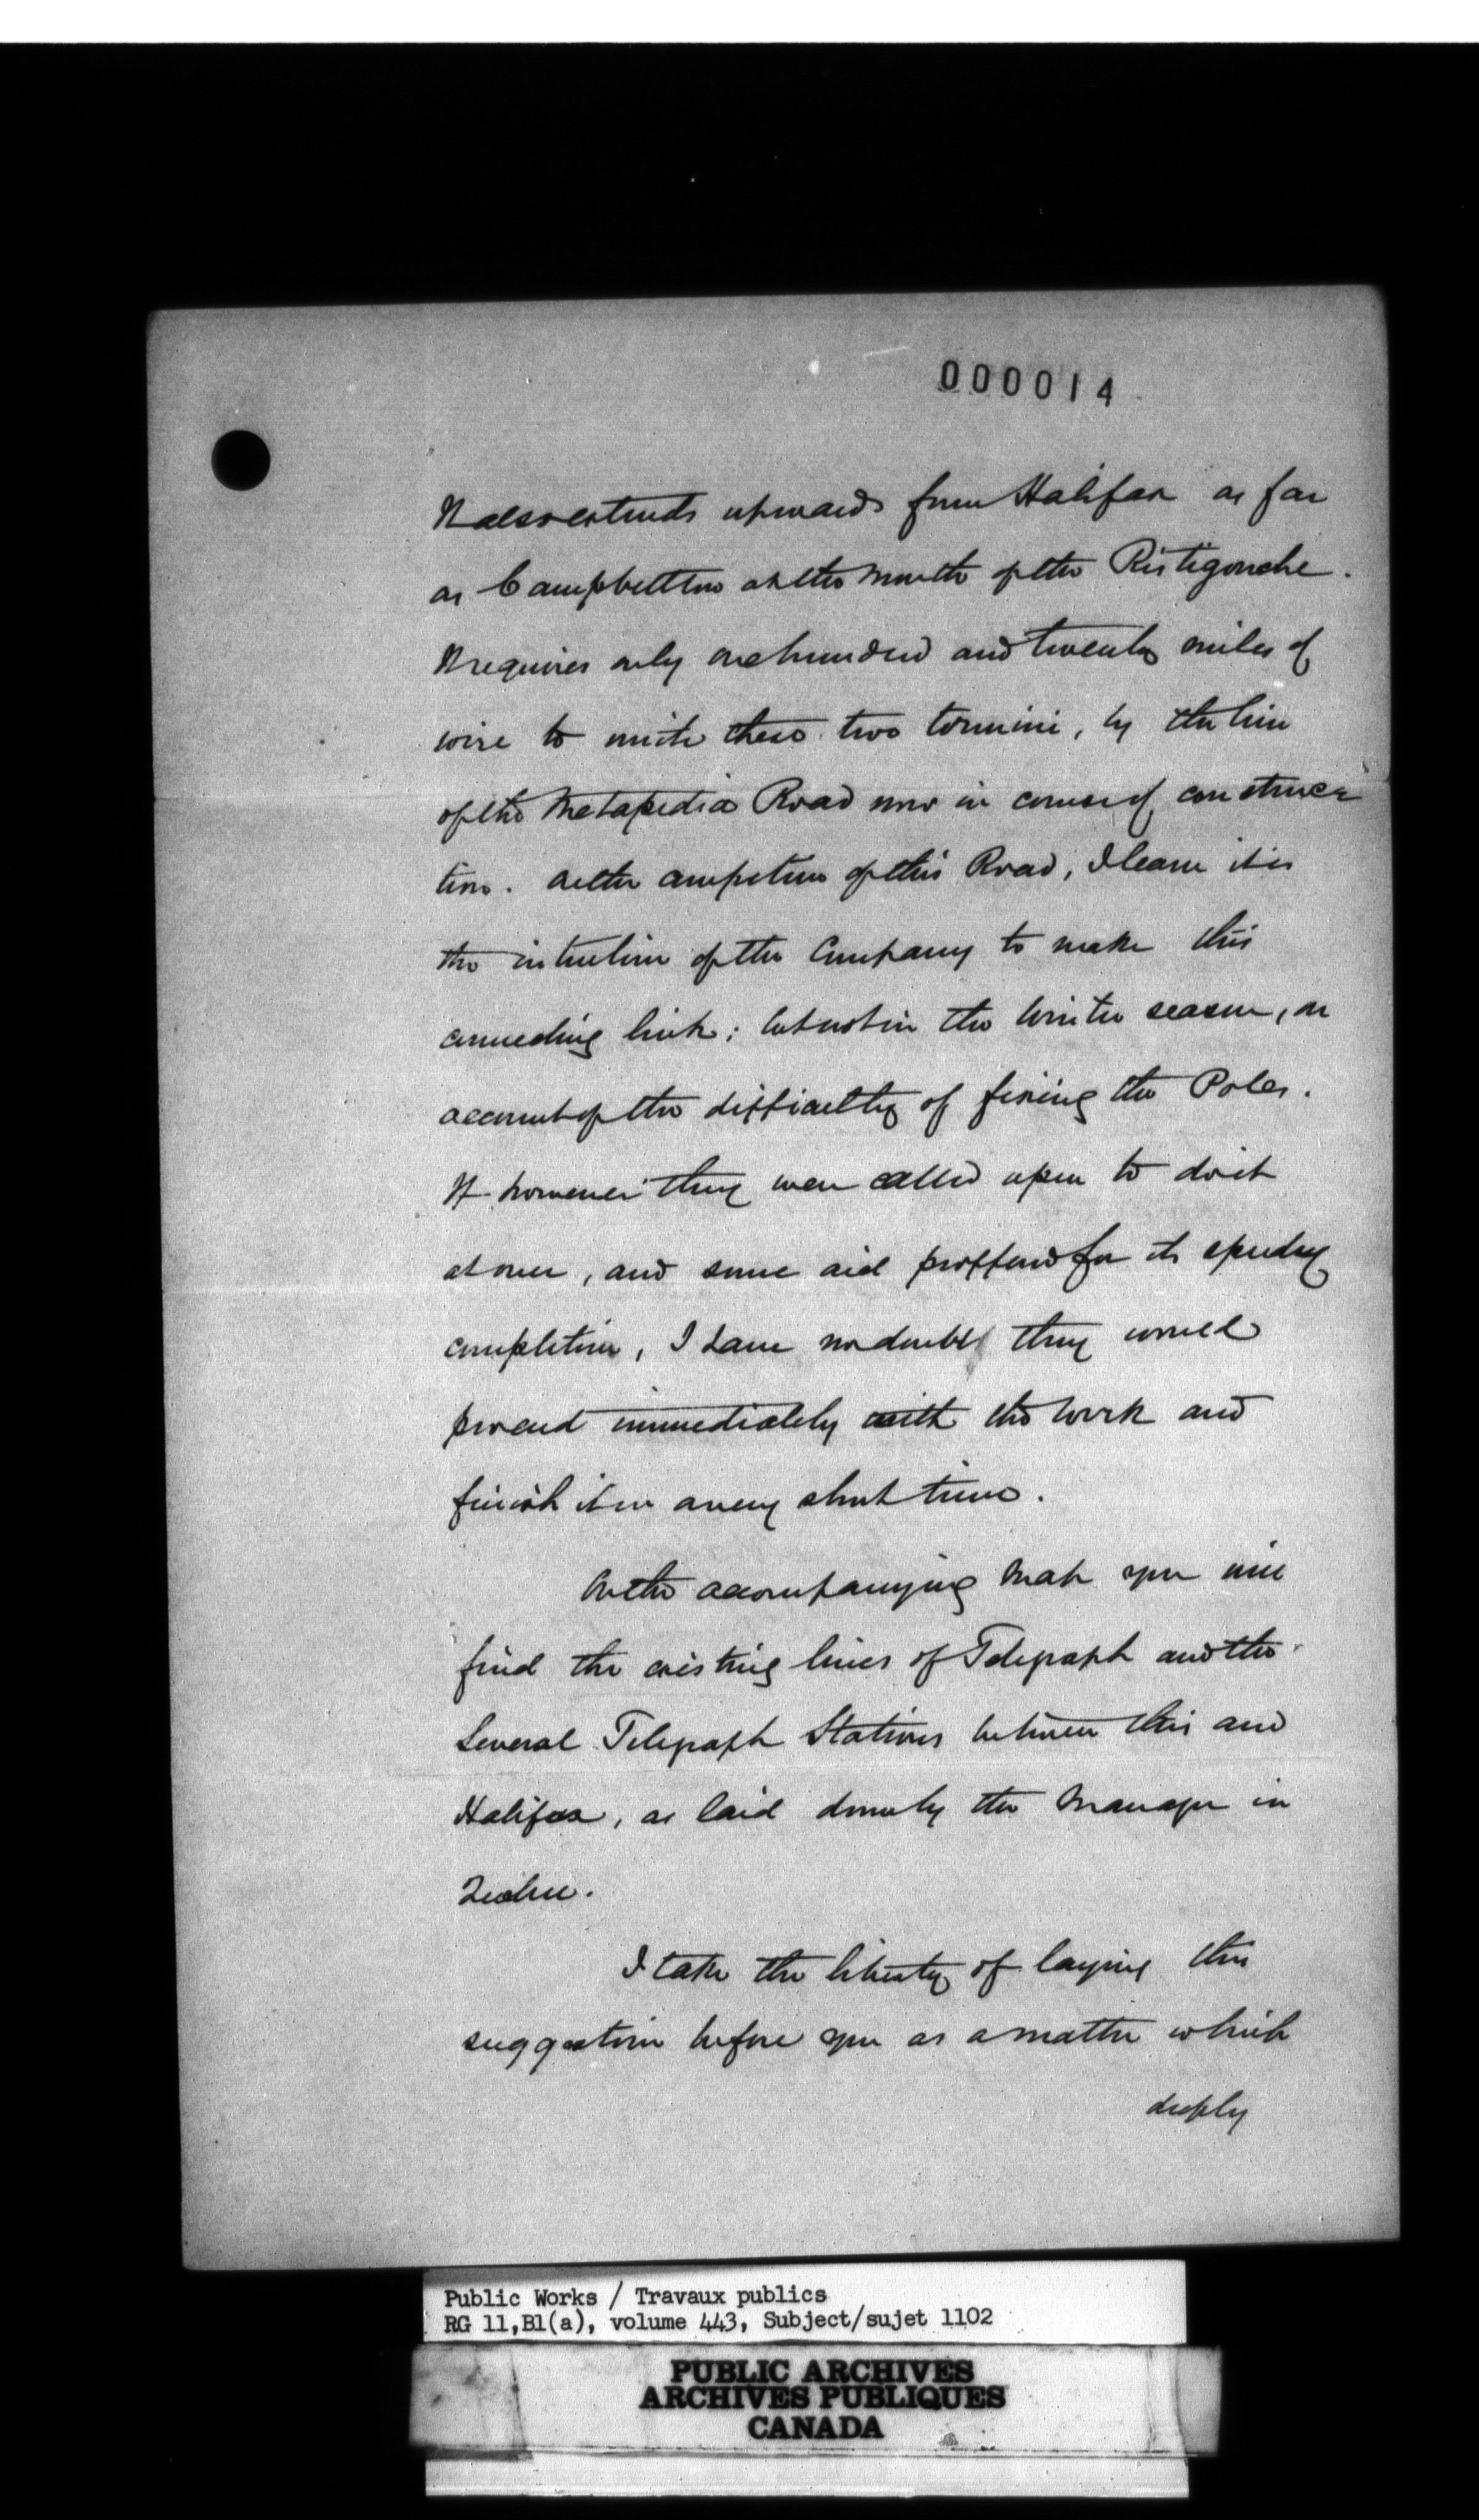 000014
It also extends upwards from Halifax as far
as Campbellton at the mouth of the Ristigouche.
It requires only one hundred and twenty miles of
wire to unite these two termini, by the line
of the Metapedia Road now in course of construc-
tion. At the completion of this Road, I learn it is
the intention of the Company to make this
connecting link; but not in the Winter season, on
account of the difficulty of fixing the Poles.
If however they were called upon to do it
at once, and some aid proffered for its speedy
completion, I have no doubt they would
proceed immediately with the work and
finish it in a very short time.
On the accompanying Map you will
find the existing lines of Telegraph and the
Several Telegraph Stations between this and
Halifax, as laid down by the Manager in
Quebec.
I take the liberty of laying this
suggestion before you as a matter which
deeply
Public Works / Travaux publics
RG 11,B1(a), volume 443, Subject/sujet 1102
PUBLIC ARCHIVES
ARCHIVES PUBLIQUES
CANADA